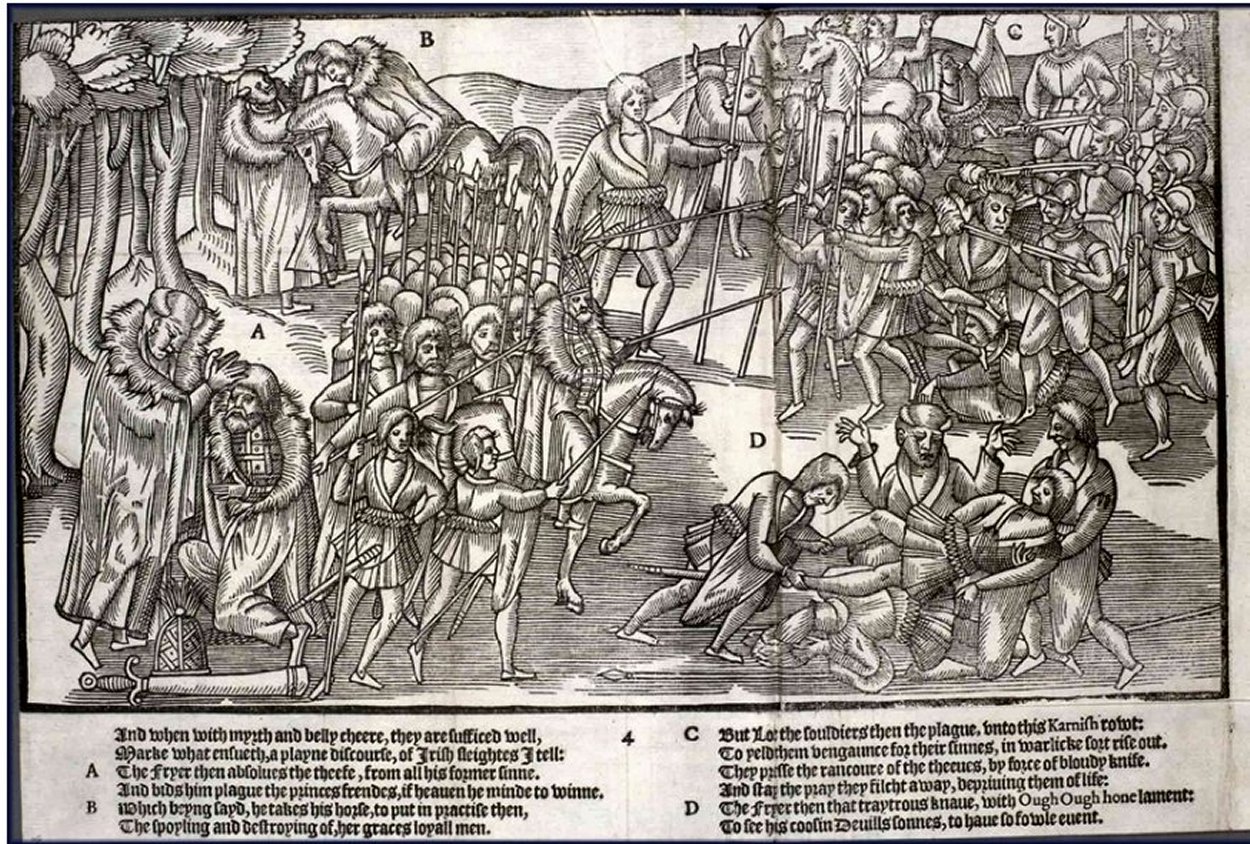 B
C
A
D
And when with myrth and belly cheere, they are sufficed well,
Marke what ensueth, a playne discourse, of Irish sleightes I tell:
A The Fryer then absolues the theefe, from all his former sinne.
And bids him plague the princes frendes, if heauen he minde to winne.
B Which beyng sayd, he takes his horse, to put in practise then,
The spoyling and destroying of, her graces loyall men.
4
C But Loe the souldiers then the plague, vnto this Karnish rowt:
To yeld them vengaunce for their sinnes, in warlicke sort rise out.
They presse the rancoure of the theeues, by force of bloudy knife.
And stay the pray they filcht away, depriuing them of life:
D The Fryer then that traytrous knaue, with Ough Ough hone lament:
To see his coosin Deuills sonnes, to haue so fowle euent.